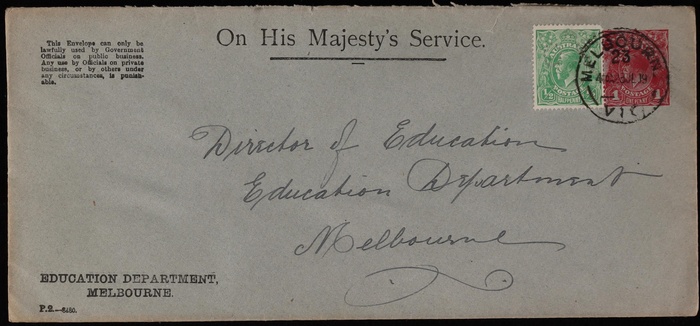 This Envelope can only be
lawfully used by Government
Officials on public business.
Any use by Officials on private
business, or by others under
any circumstances, is punish-
able.
On His Majesty's Service.
AUSTRALIA
½ POSTAGE ½
HALFPENNY
MELBOURNE
23
19
VIC
1 POSTAGE 1
ONE PENNY
Director of Education
Education Department
Melbourne
EDUCATION DEPARTMENT,
MELBOURNE.
P.2.—6480.